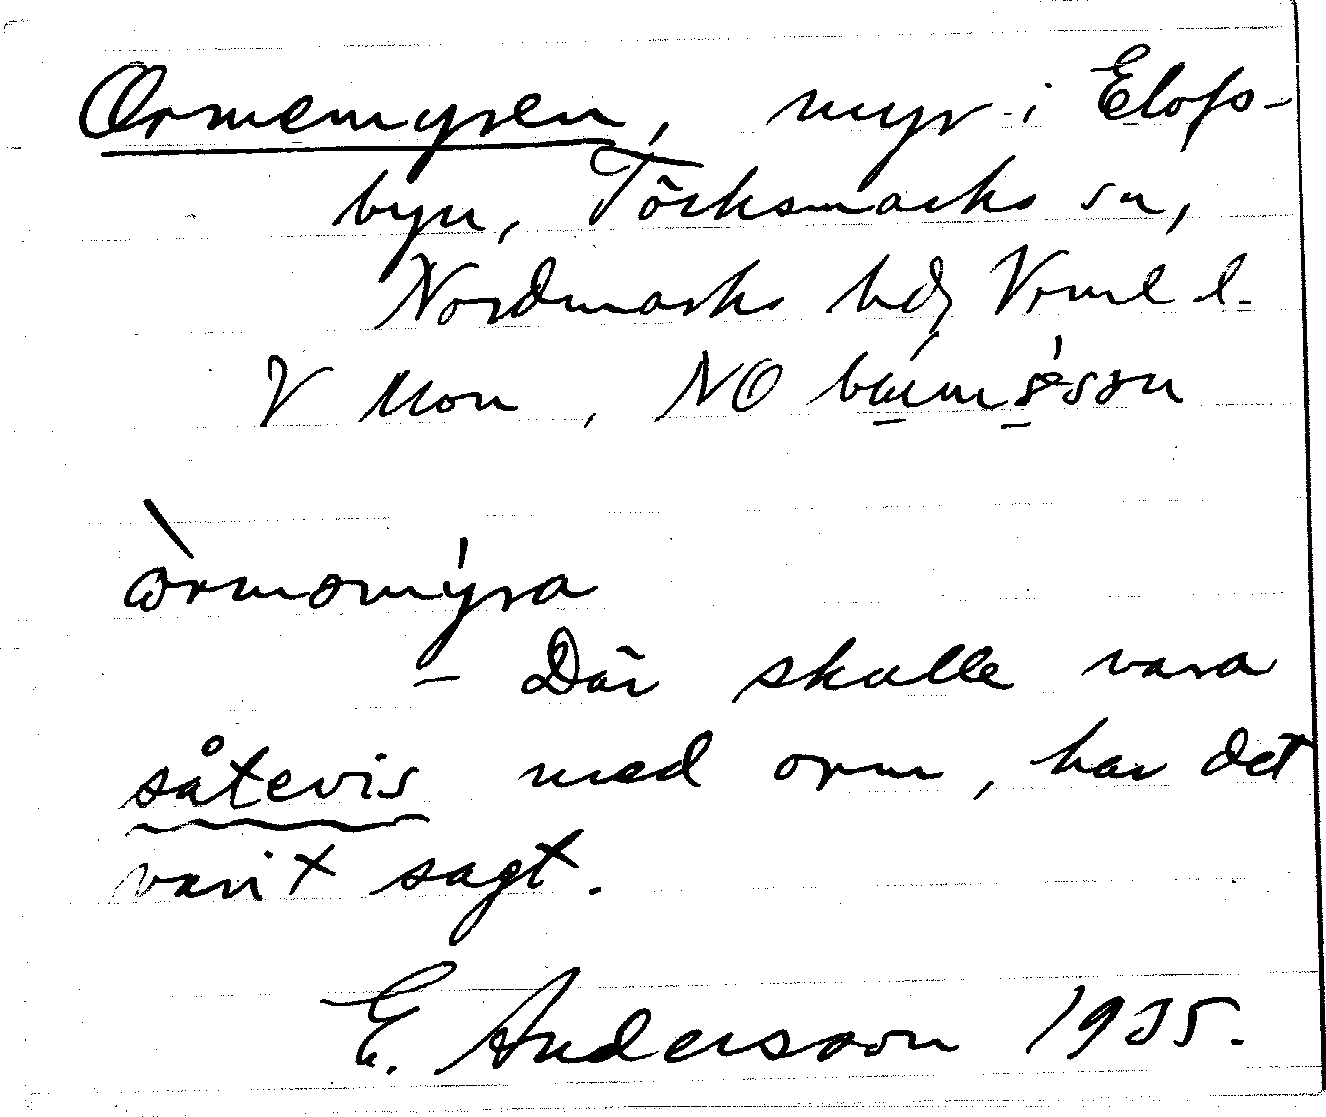 Ormemyren, myr i Elofs-
byn, Töcksmarks sn,
Nordmarks hd, Vrml l.
V Mon, NO
ormomýra
– Där skulle vara
såtevis med orm, har det
varit sagt.
E. Andersson 1935.